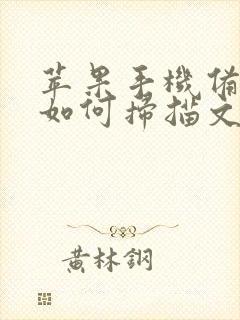 苹果手機備
如何掃描文
黃林鋼